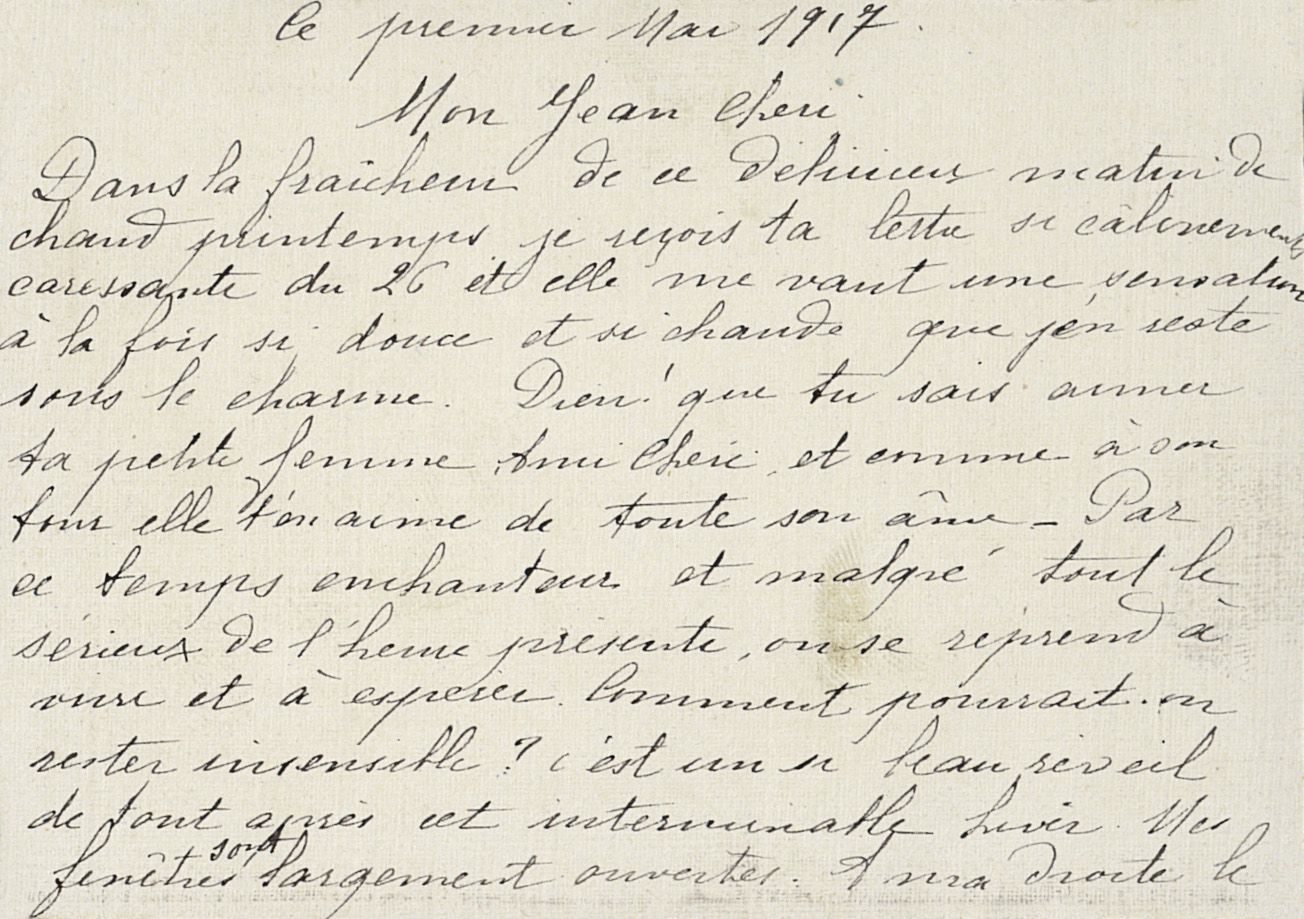 Ce premier Mai 1917.
Mon Jean Cheri
Dans la fraîcheur de ce délicieux matin de
chaud printemps je reçois ta lettre si câlinement
caressante du 26 et elle me vaut une sensation
à la fois si douce et si chaude que j'en reste
sous le charme. Dieu! que tu sais aimer
ta petite femme, Ami Cheri, et comme à son
tour elle t'en aime de toute son âme - Par
ce temps enchanteur et malgré tout le
sérieux de l'heure présente, on se réprend à
vivre et à espérer. Comment pourrait-on
rester insensible? c'est un si beau réveil
de tout après cet interminable hiver. Mes
fenêtres sont largement ouvertes. A ma droite le